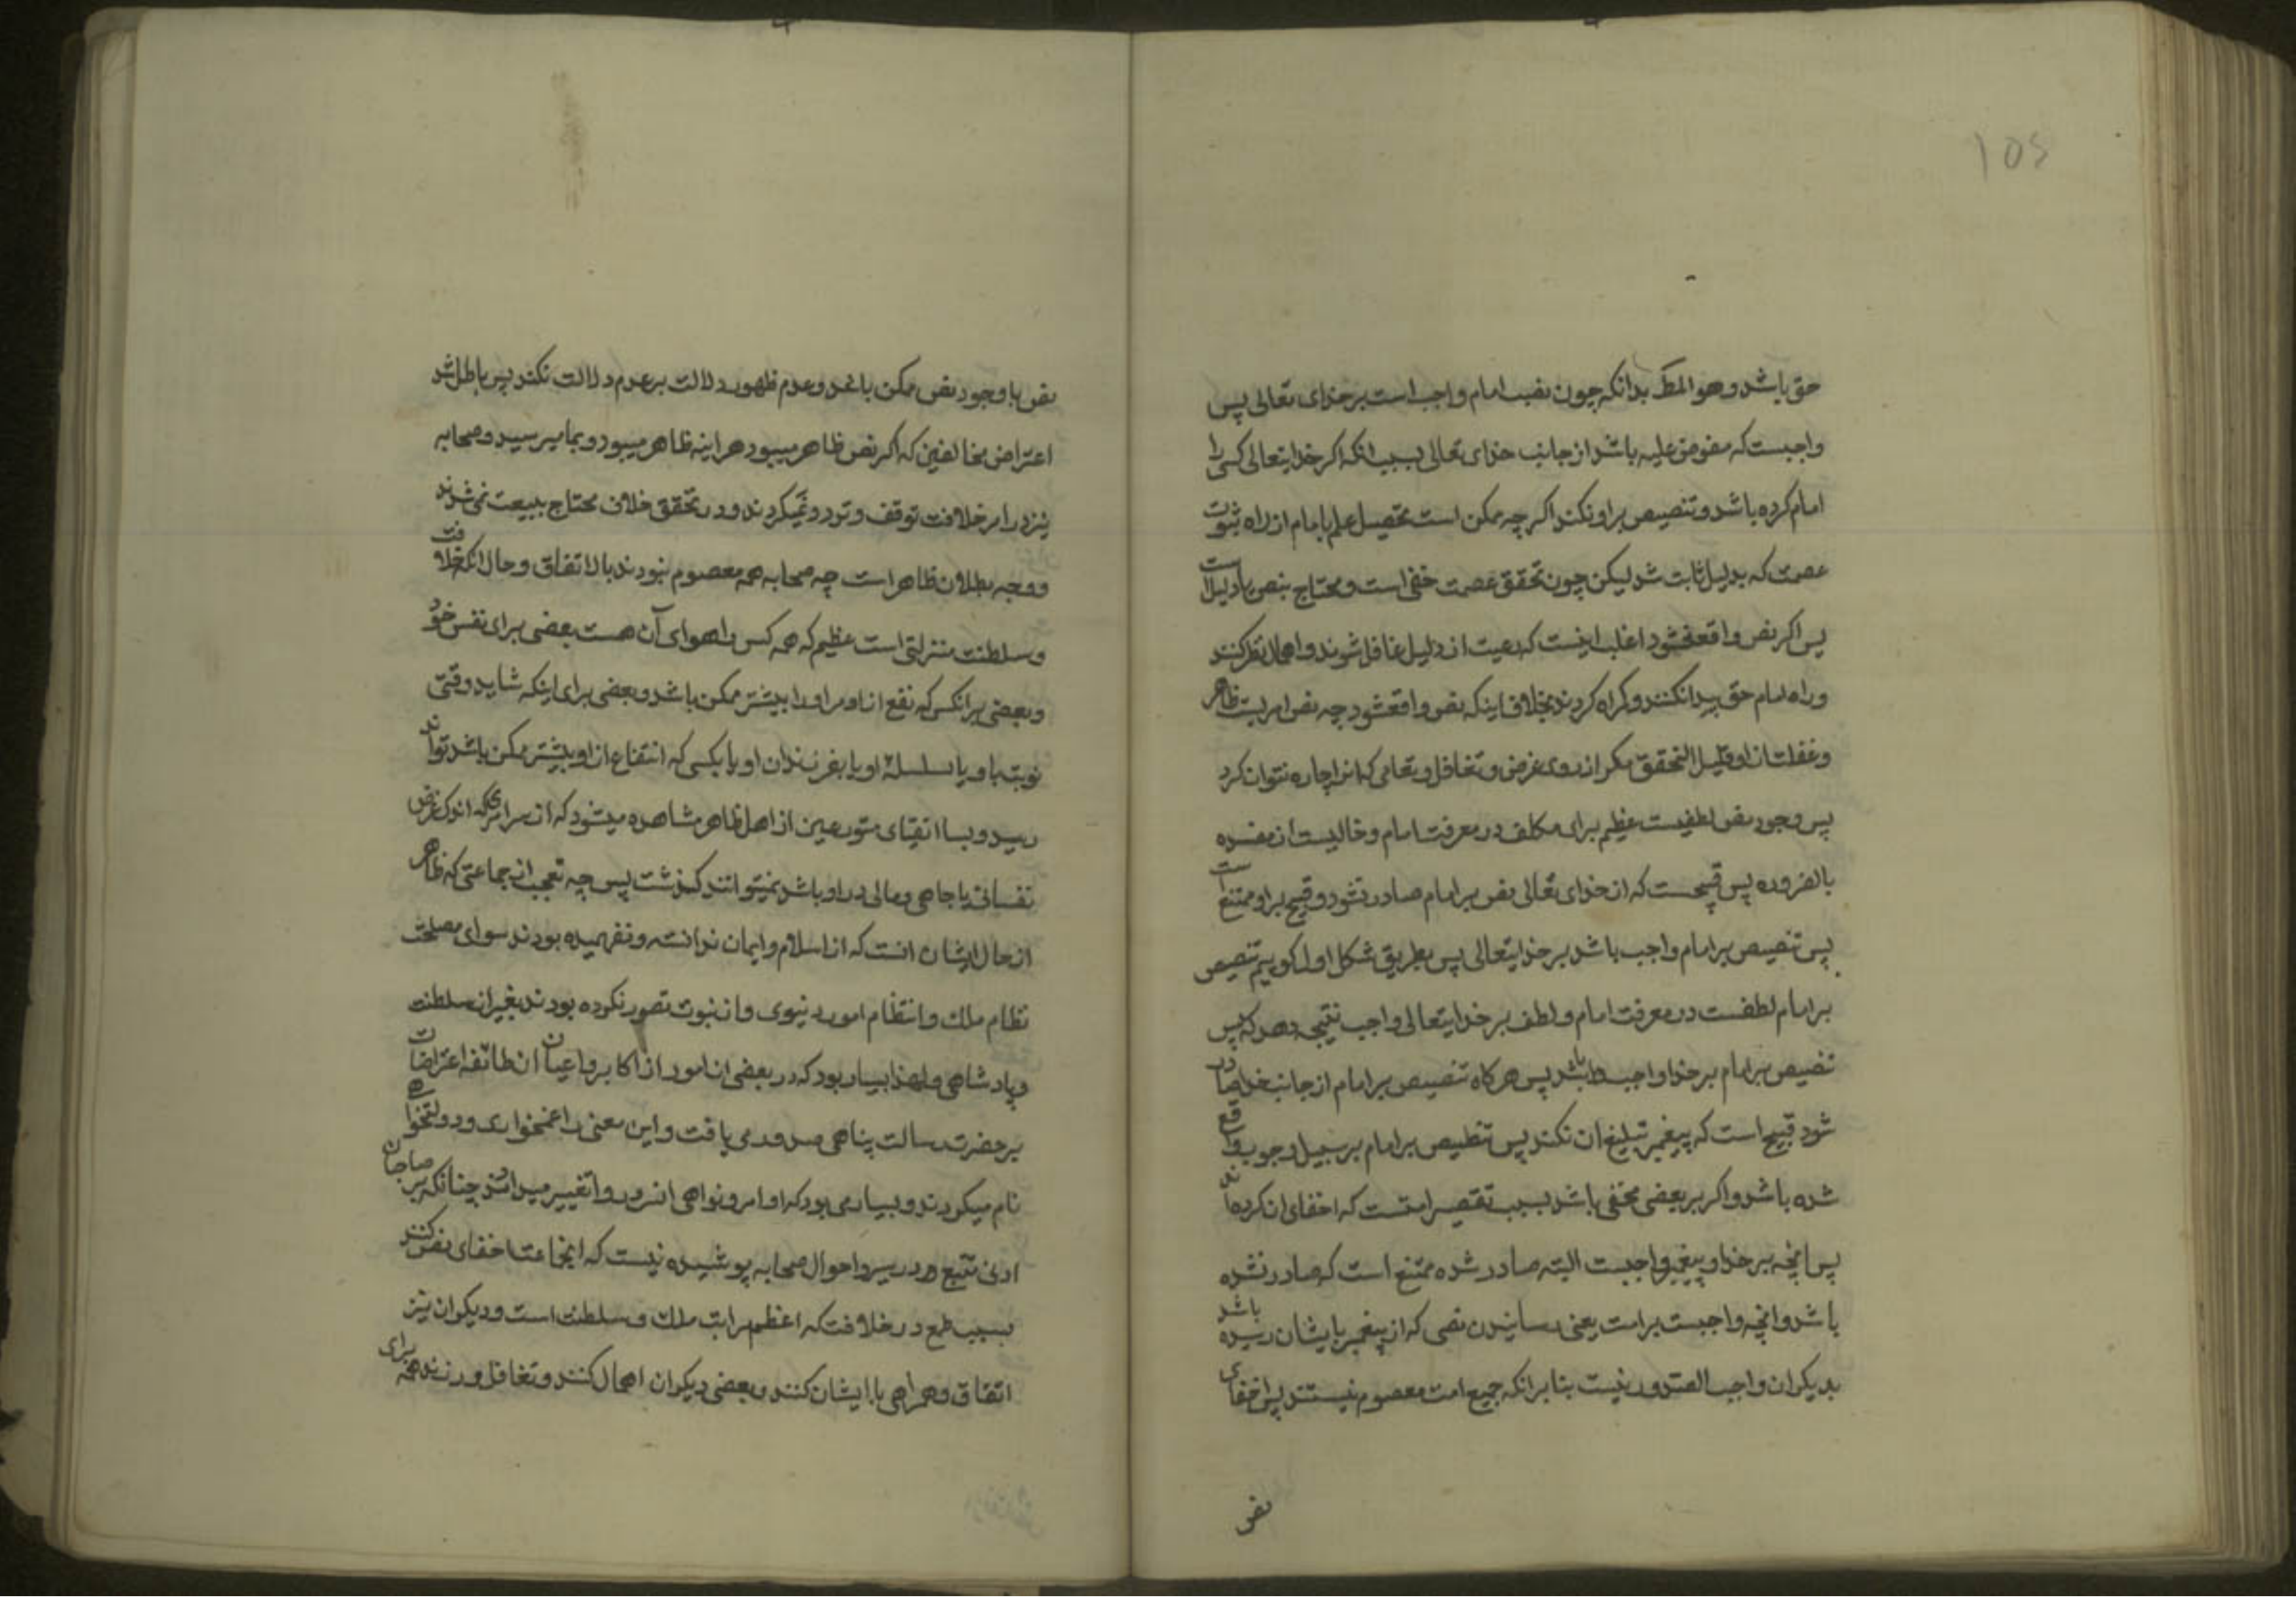 105
حق باشد و هو المط بدانکه چون نصب امام واجب است بر خدای تعالی پس
واجبست که منصوص علیه باشد از جانب خدای تعالی بسبب انکه اکر خدایتعالی کسی را
امام کرده باشد و تنصیص بر او نکند اکر چه ممکن است تحصیل علم بامام از راه ثبوت
عصمت که بدلیل ثابت شد لیکن چون تحقق عصمت خفی است و محتاج بنص یا دلیل است
پس اکر نص واقع نشود اغلب اینست که رعیت از دلیل غافل شوند و اهمال نظر کنند
و راه امام حق پیدا نکنند و کمراه کردند بخلاف اینکه نص واقع شود چه نص امریست ظاهر
و غفلت از او قلیل التحقق مکر از روی غرض و تغافل و تعامی که انرا چاره نتوان کرد
پس وجود نص لطفیست عظیم برای مکلف در معرفت امام و خالیست از مفسده
بالضروره پس قبیحست که از خدای تعالی نص بر امام صادر نشود و قبیح بر او ممتنع است
پس تنصیص بر امام واجب باشد بر خدایتعالی پس بطریق شکل اول کوییم تنصیص
بر امام لطفست در معرفت امام و لطف بر خدایتعالی واجب نتیجه دهد که پس
تنصیص بر امام بر خدا واجب باشد پس هرکاه تنصیص بر امام از جانب خدا صادر
شود قبیح است که پیغمبر تبلیغ ان نکند پس تنطیص بر امام بر سبیل وجوب واقع
شده باشد و اکر بر بعضی مخفی باشد بسبب تقصیر امتست که اخفای ان کرده اند
پس انچه بر خدا و پیغمبر واجبست البته صادر شده ممتنع است که صادر نشده
باشد و انچه واجبست بر امت یعنی رسانیدن نصی که از پیغمبر بایشان رسیده باشد
بدیکران واجب الصدور نیست بنا بر انکه جمیع امت معصوم نیستند پس اخفای
نص
نص با وجود نص ممکن باشد و عدم ظهور دلالت بر عدم دلالت نکند پس باطل شد
اعتراض مخالفین که اکر نص ظاهر میبود هر اینه ظاهر میبود و بما میرسید و صحابه
نیز در امر خلافت توقف و تردد نمیکردند و در تحقق خلاف محتاج ببیعت نمی شدند
و وجه بطلان ظاهر است چه صحابه همه معصوم نبودند بالاتفاق و حال انکه خلافت
و سلطنت منزلتی است عظیم که همه کس را هوای آن هست بعضی برای نفس خود
و بعضی بر انکس که نفع از او مر او را بیشتر ممکن باشد و بعضی برای اینکه شاید وقتی
نوبت باو یا سلسلهٔ او یا بفرزندان او یا بکسی که انتفاع از او بیشتر ممکن باشد تواند
رسید و بسا اتقیای متورعین از اهل ظاهر مشاهده میشود که از سر امری که اندک غرض
نفسانی یا جاهی و مالی در او باشد نمیتوانند کذشت پس چه تعجب از جماعتی که ظاهر
از حال ایشان انست که از اسلام و ایمان ندانسته و نفهمیده بودند سوای مصلحت
نظام ملک و انتظام امور دنیوی و از نبوت تصور نکرده بودند بغیر از سلطنت
و پادشاهی و لهذا بسیار بود که در بعضی از امور از اکابر و اعیان ان طائفه اعتراضات
بر حضرت رسالت پناهی صدور می یافت و این معنی را غمخواری و دولتخواهی
نام میکردند و بسیار می بود که اوامر و نواهی انسرور را تغییر میدادند چنانکه بر صاحبان
ادنی تتبع در سیر و احوال صحابه پوشیده نیست که انجماعت اخفای نص کنند
بسبب طمع در خلافت که اعظم مراتب ملک و سلطنت است و دیکران نیز
اتفاق و همراهی با ایشان کنند و بعضی دیکران اهمال کنند و تغافل ورزند همه برای